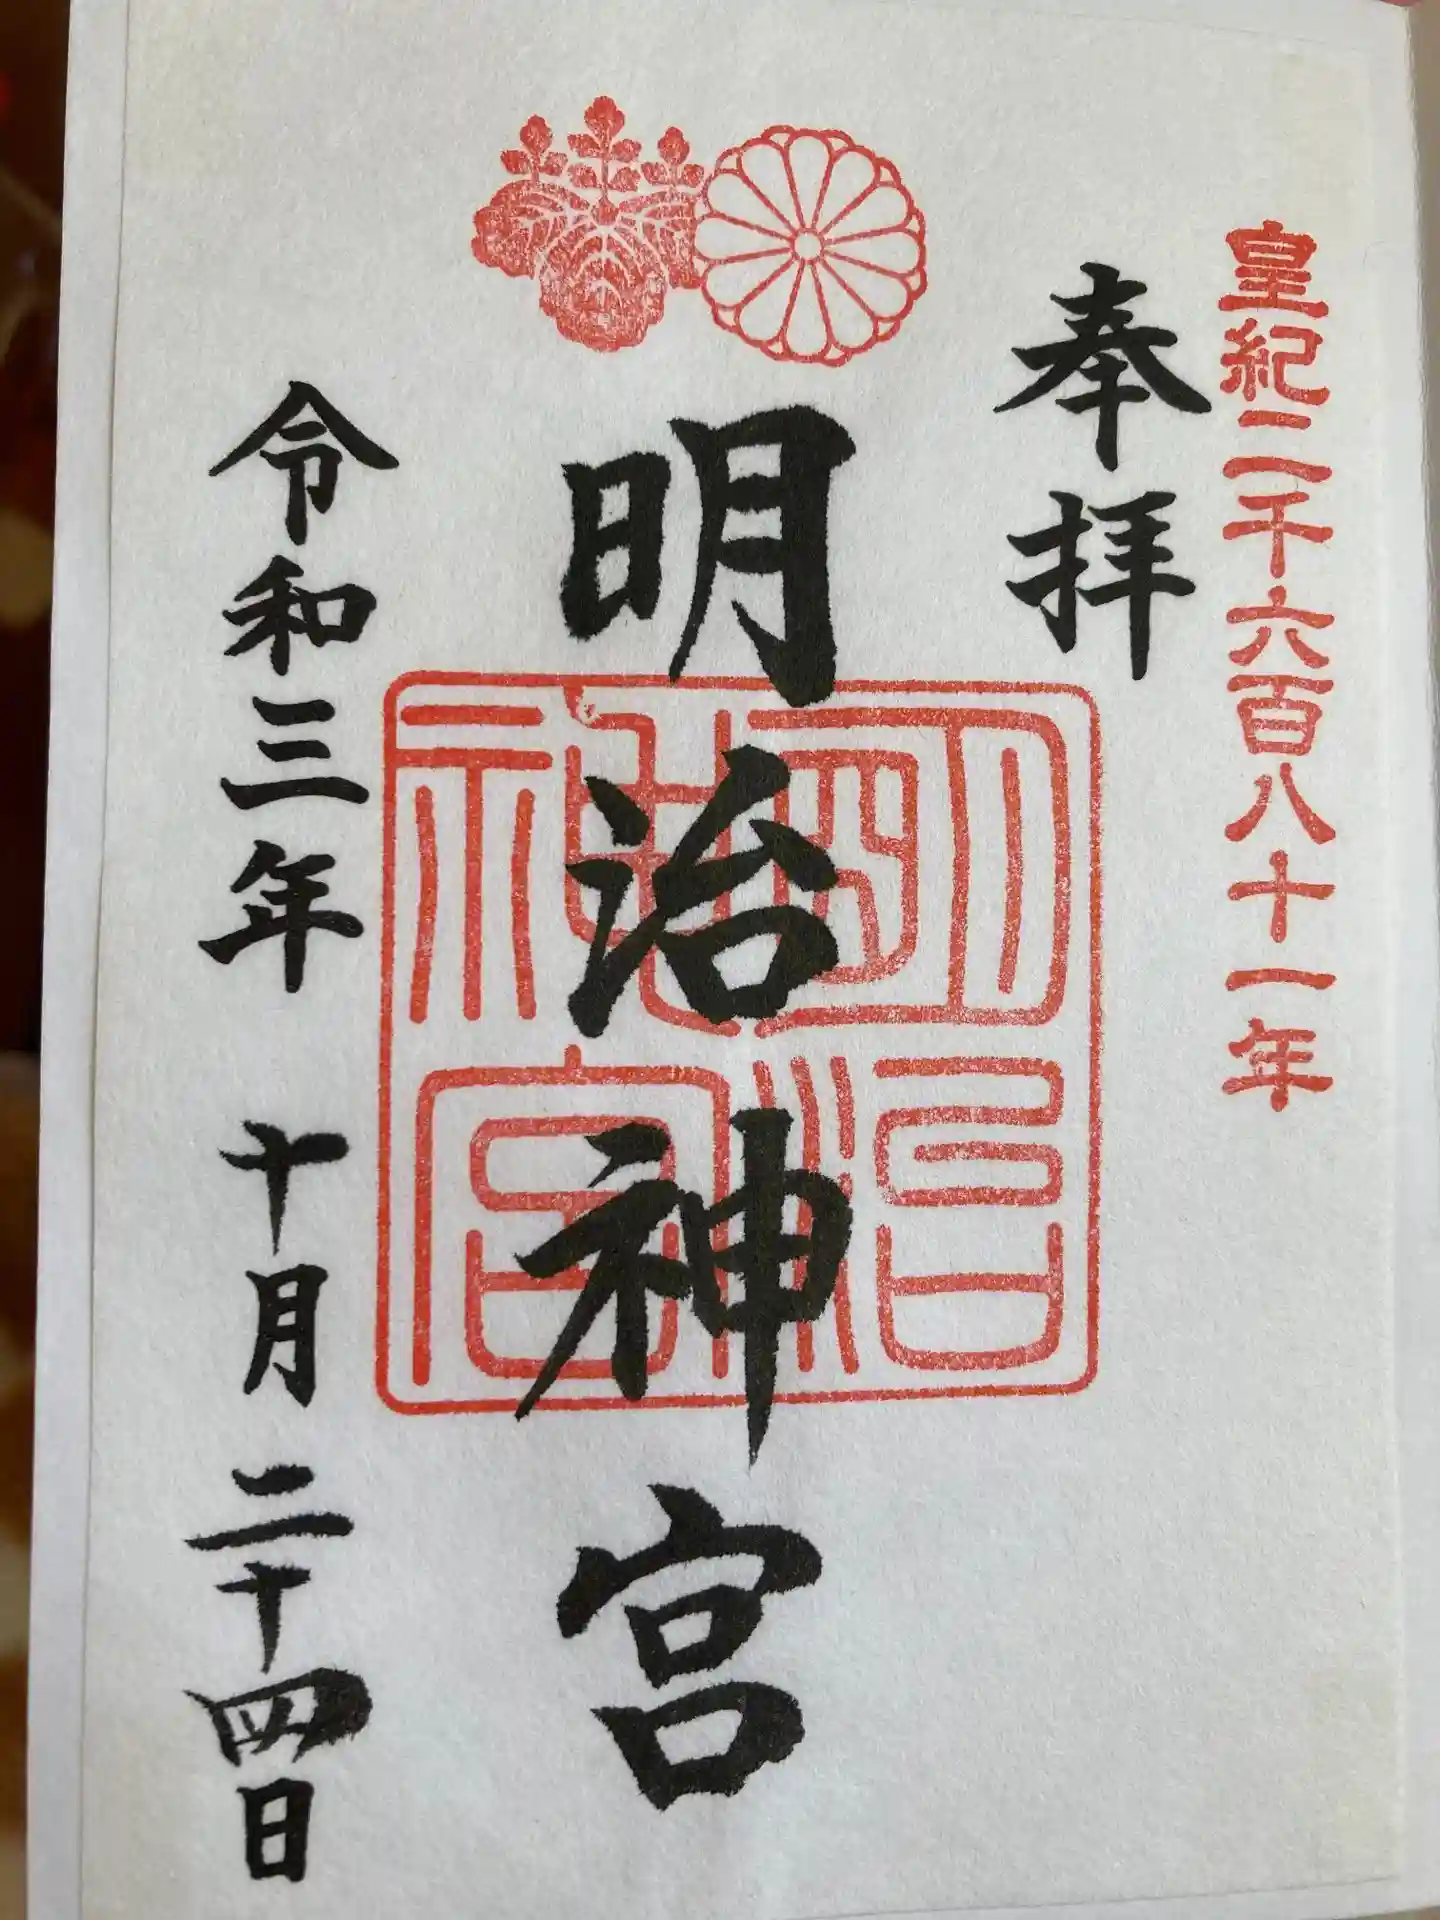 皇紀二千六百八十一年
奉拝
明治神宮
明治神宮
令和三年 十月二十四日